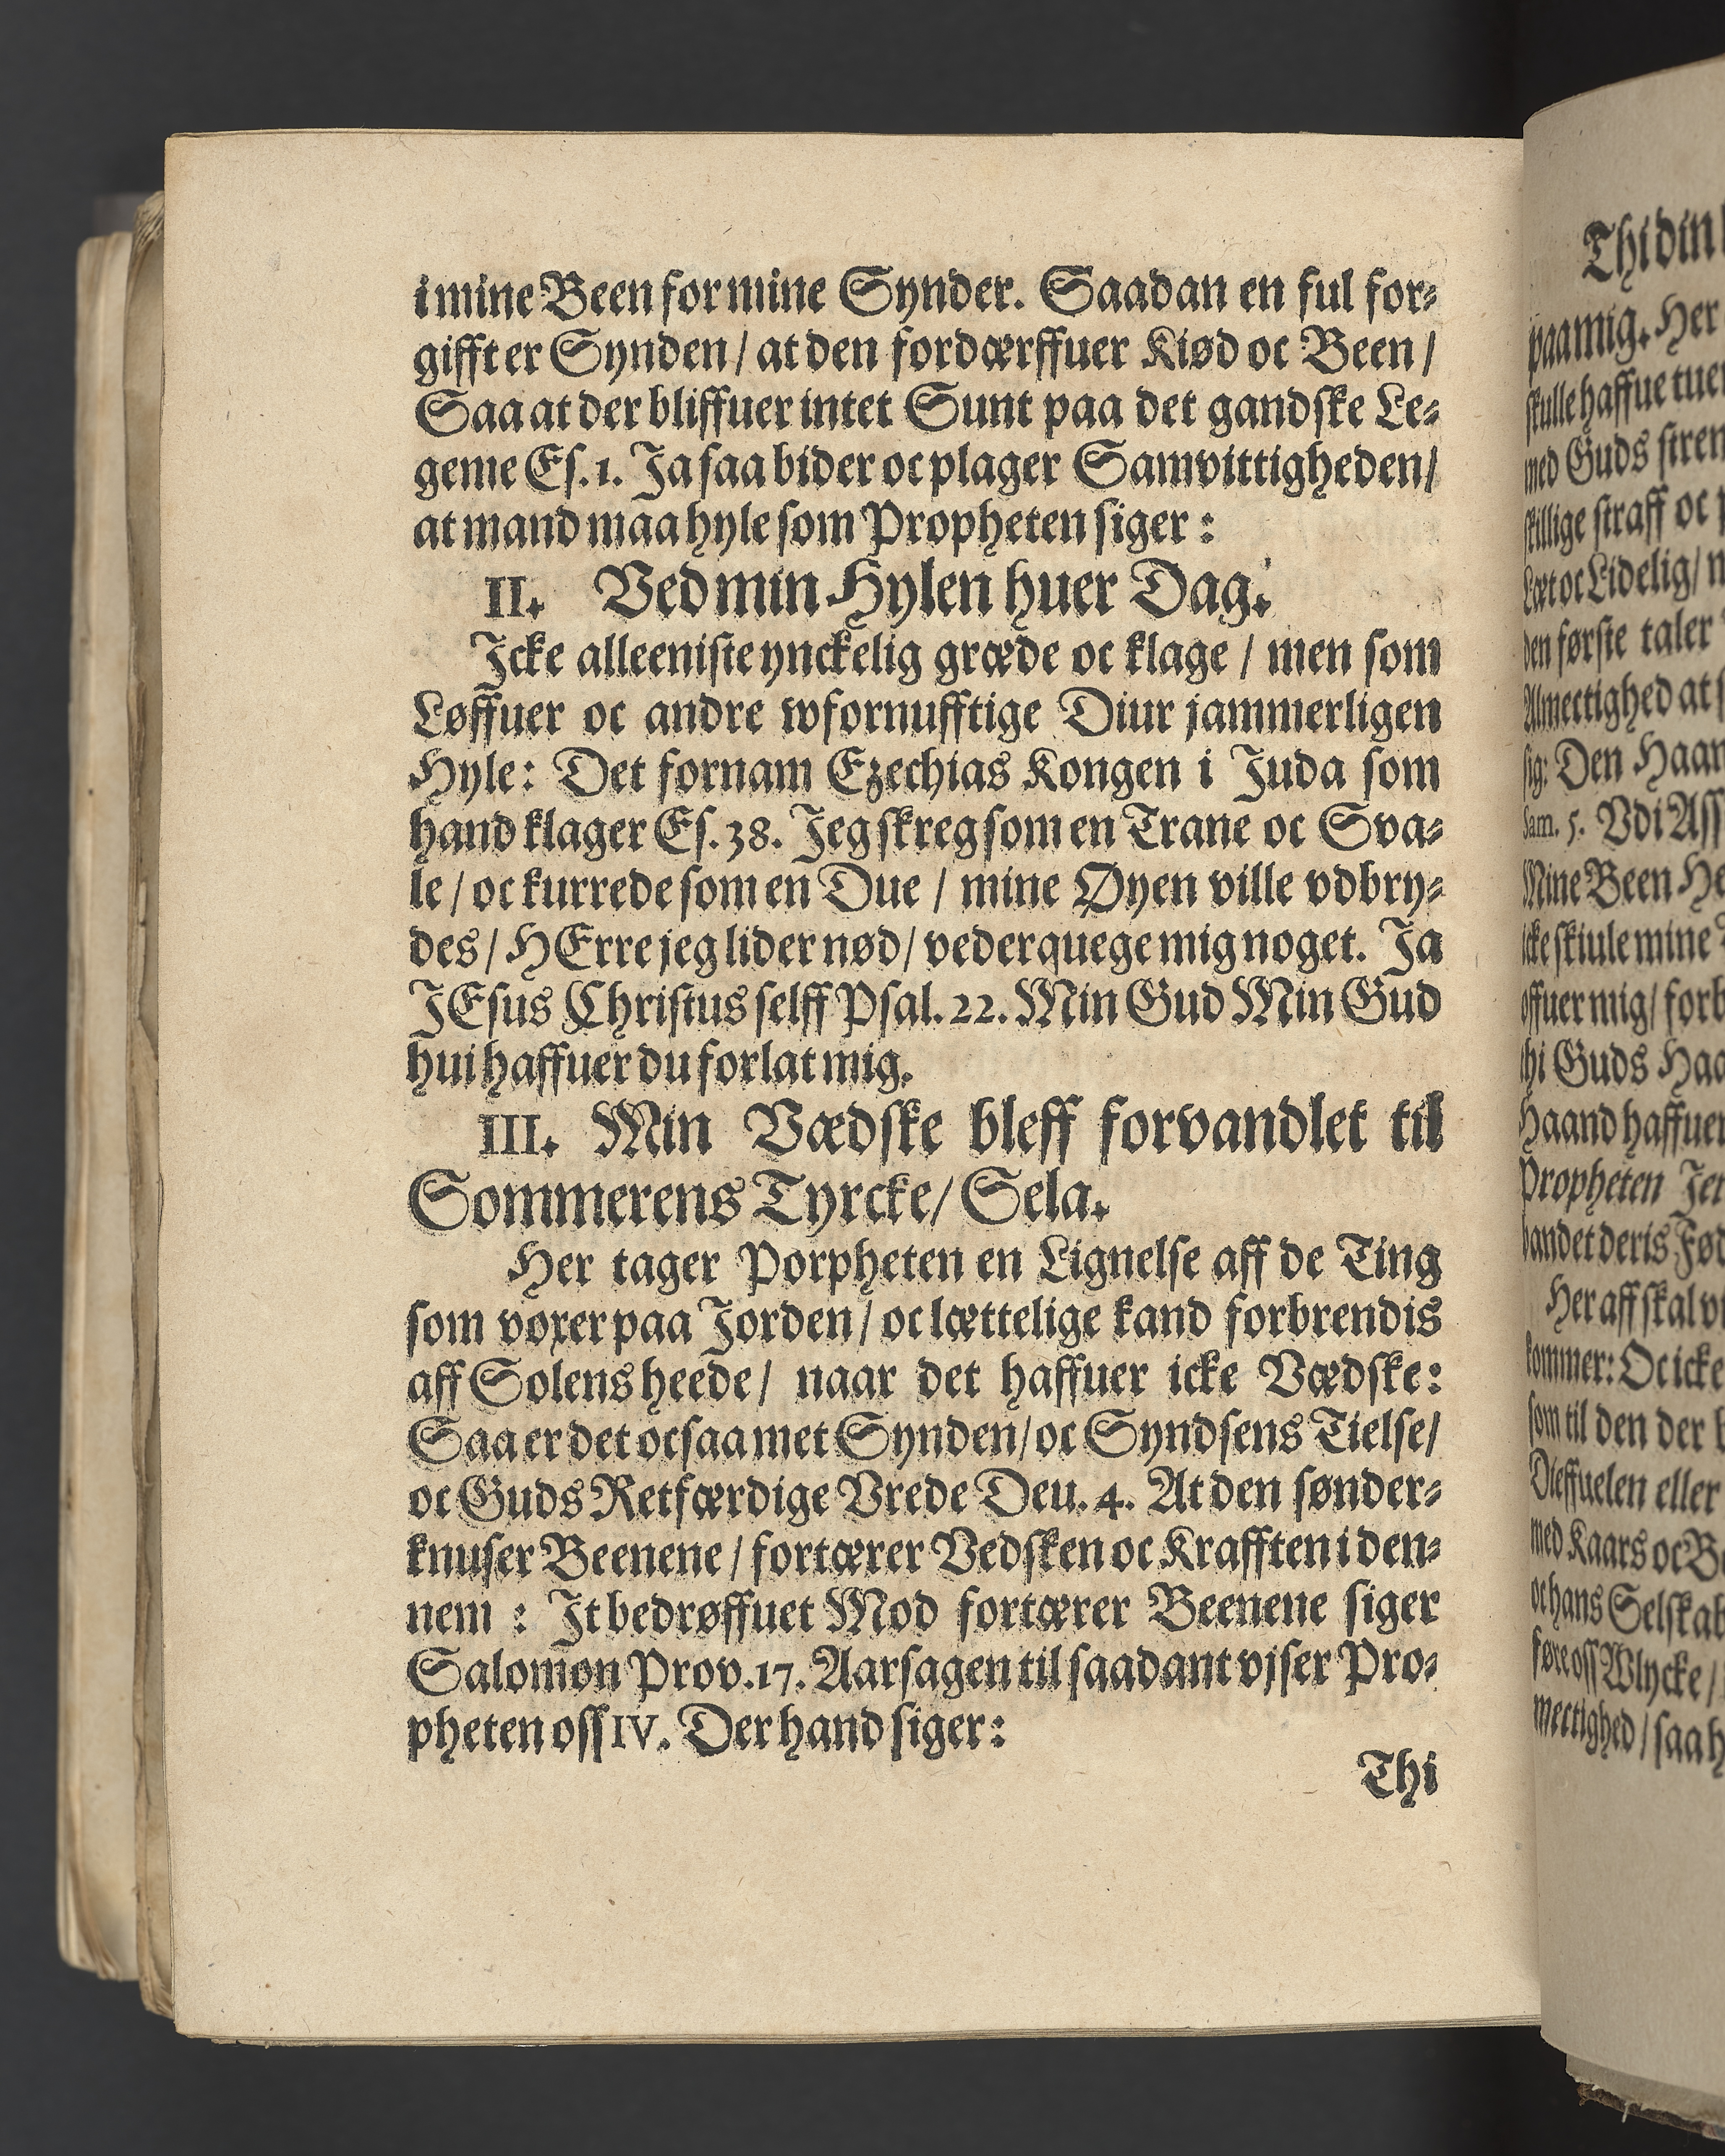 i mine Been for mine Synder. Saadan en ful for⸗
gifft er Synden / at den fordærffuer Kiød oc Been /
Saa at der bliffuer intet Sunt paa det gandske Le⸗
geme Es. 1. Ja saa bider oc plager Samvittigheden /
at mand maa hyle som Propheten siger :
II. Ved min Hylen huer Dag.
Icke alleeniste ynckelig græde oc klage / men som
Løffuer oc andre wfornufftige Diur jammerligen
Hyle : Det fornam Ezechias Kongen i Juda som
hand klager Es. 38. Jeg skreg som en Trane oc Sva⸗
le / oc kurrede som en Due / mine Øyen ville vdbry⸗
des / HErre jeg lider nød / vederquege mig noget. Ja
JEsus Christus selff Psal. 22. Min Gud Min Gud
hui haffuer du forlat mig.
III. Min Vædske bleff forvandlet til
Sommerens Tyrcke / Sela.
Her tager Porpheten en Lignelse aff de Ting
som voxer paa Jorden / oc lættelige kand forbrendis
aff Solens heede / naar det haffuer icke Vædske :
Saa er det ocsaa met Synden / oc Syndsens Tielse /
oc Guds Retfærdige Vrede Deu. 4. At den sønder⸗
knuser Beenene / fortærer Vedsken oc Krafften i den⸗
nem : It bedrøffuet Mod fortærer Beenene siger
Salomon Prov. 17. Aarsagen til saadant vjser Pro⸗
pheten oss IV. Der hand siger :
Thi
Thi din
paa mig. Her
skulle haffue tuen
med Guds stren
skillige straff oc
Læt oc Lidelig /
den første taler
Almectighed at
sig : Den Haan
Sam. 5. Vdi Ass
Mine Been He
icke skiule mine
offuer mig / forb
thi Guds Haa
Haand haffuer
Propheten Jer
bandet deris Fød
Her aff skal vi
kommer : Oc icke
som til den der
Dieffuelen eller
med Kaars oc Be
oc hans Selskab
føre oss Wlycke /
mectighed / saa h